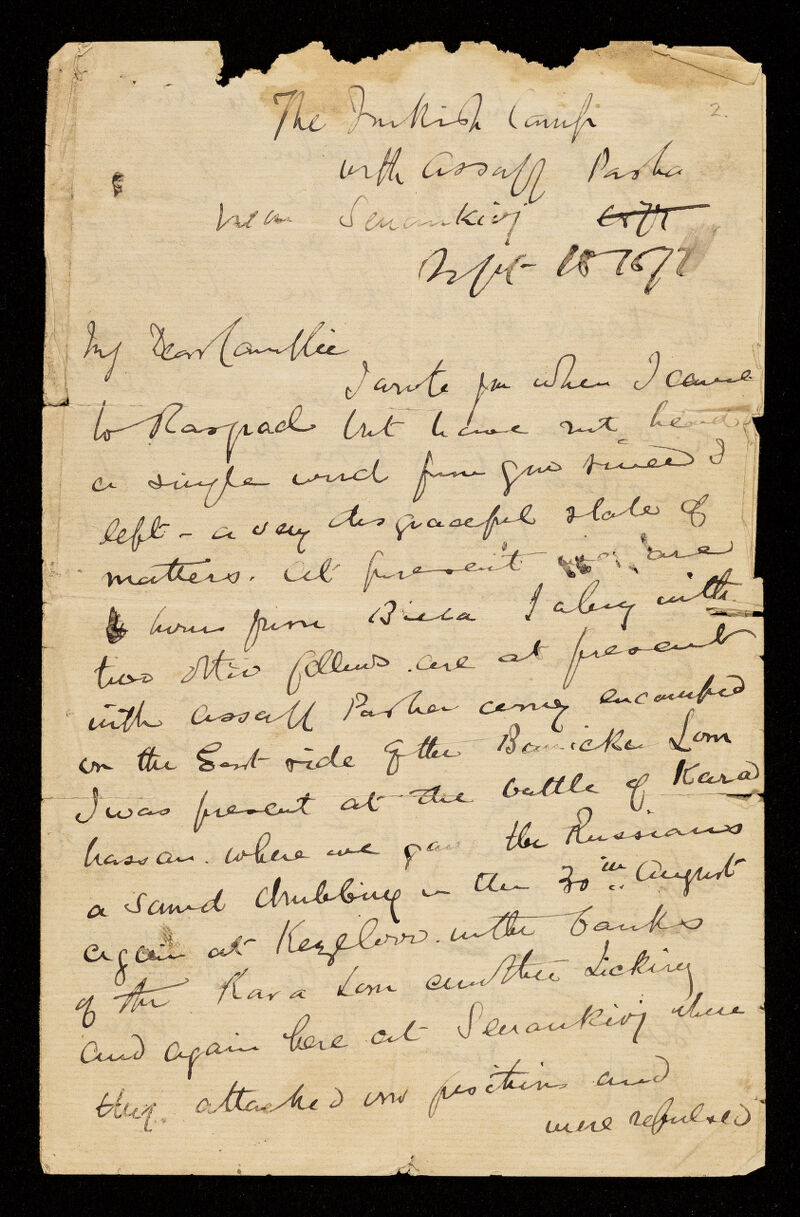 2.
The Turkish Camp
with Assaff Pasha
near Senankioj
Sept 18 1877
My Dear Camillie
I wrote you when I came
to Rasgrad but have not heard
a single word from you since I
left - a very disgraceful state of
matters. At present we are
hours from Biela I along with
two other fellows are at present
with Assaff Pasha army encamped
on the East side of the Banicka Lom
I was present at the battle of Kara
hassan where we gave the Russians
a sound drubbing on the 30th August
again at Kezelovo on the banks
of the Kara Lom another Licking
and again here at Senankioj where
they attacked our positions and
were repulsed